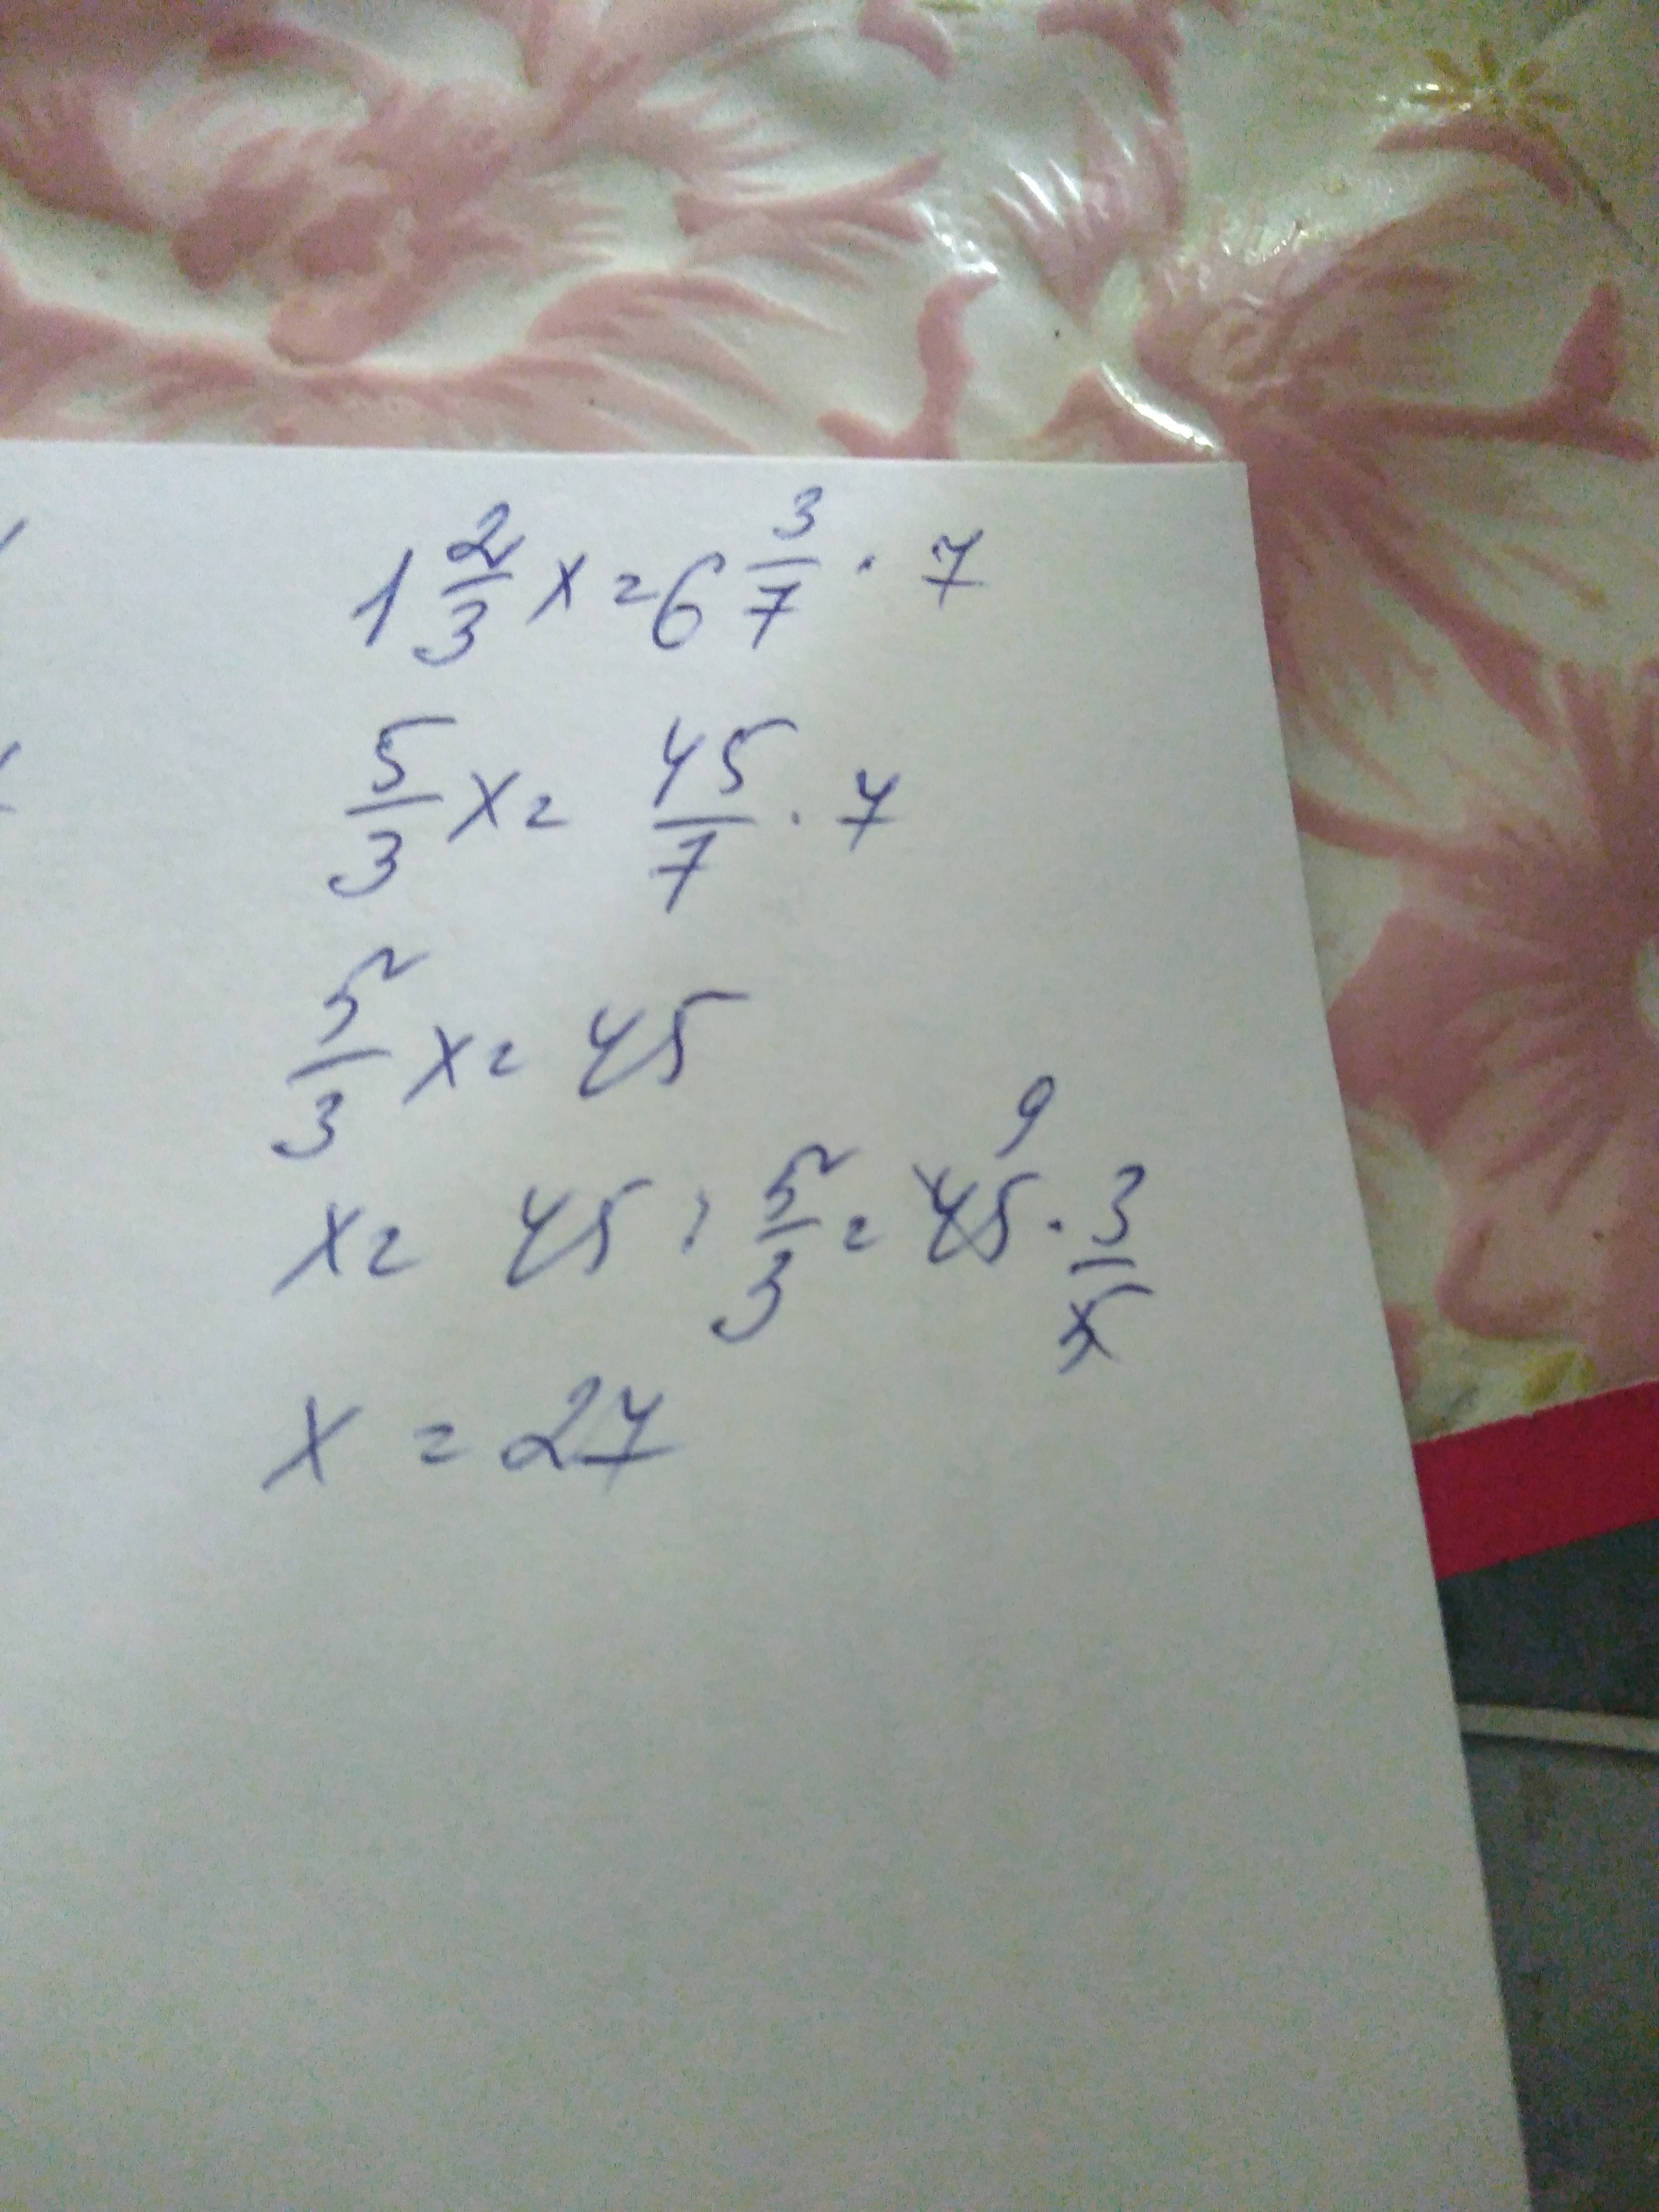 1 2/3 x = 6 3/7 · 7
5/3 x = 45/7 · 7
5/3 x = 45
x = 45 : 5/3 = 45 · 3/5
9
x = 27